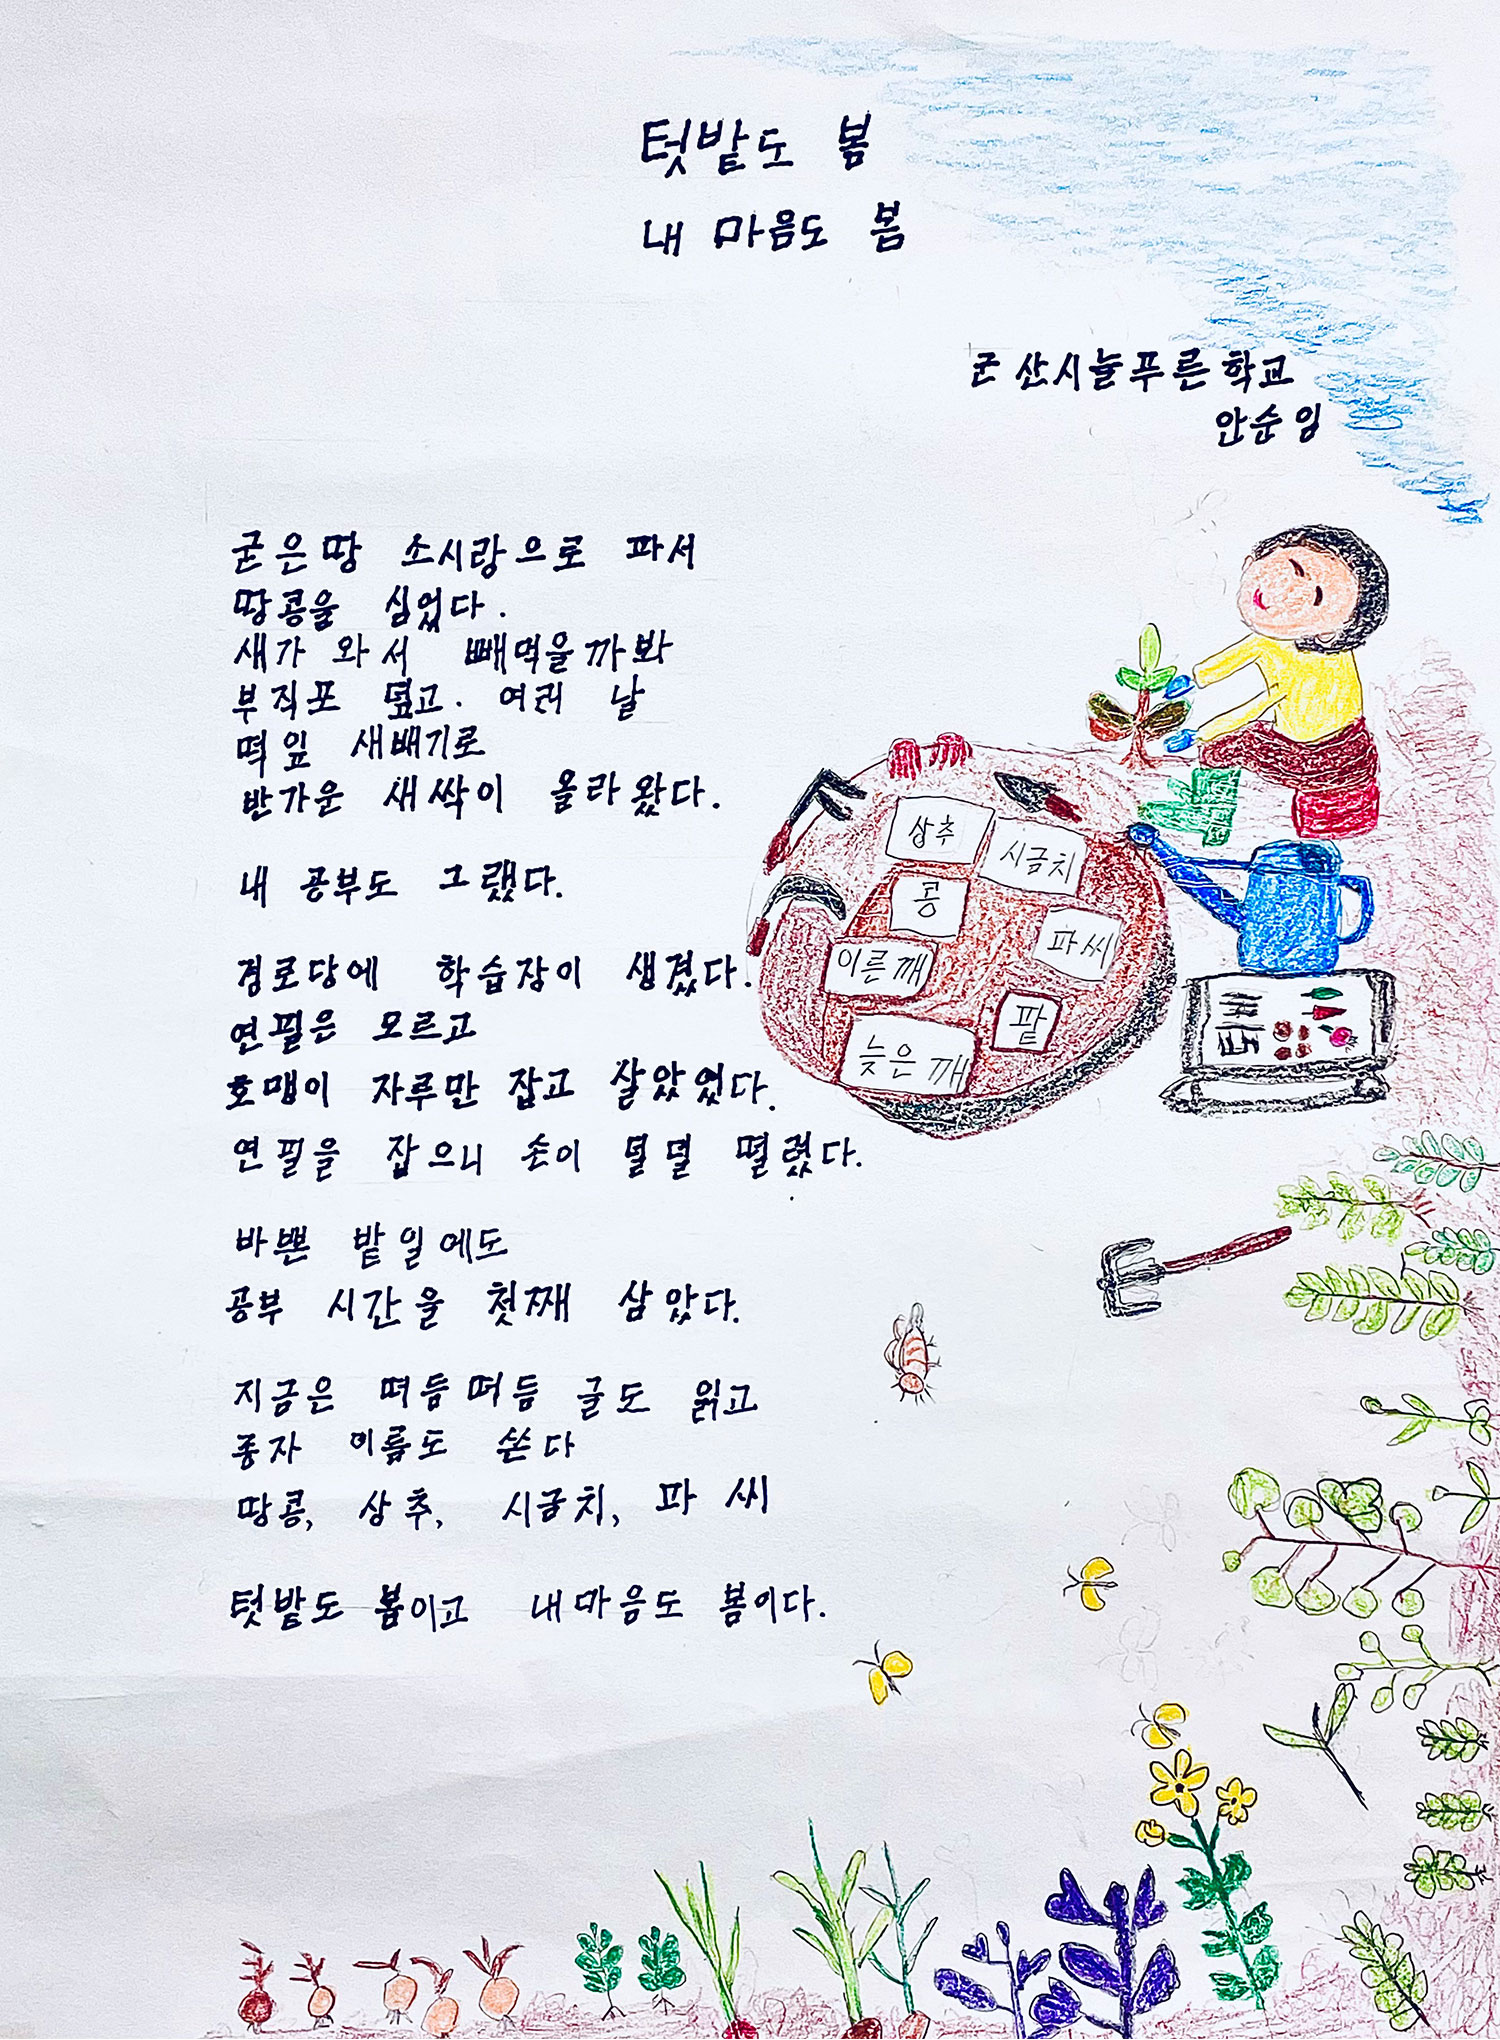 텃밭도 봄
내 마음도 봄
군산시늘푸른학교
안순임
굳은땅 소시랑으로 파서
땅콩을 심었다.
새가 와서 빼먹을까봐
부직포 덮고. 여러 날
떡잎 새배기로
반가운 새싹이 올라왔다.
내 공부도 그랬다.
경로당에 학습장이 생겼다.
연필은 모르고
호맹이 자루만 잡고 살았었다.
연필을 잡으니 손이 덜덜 떨렸다.
바쁜 밭일에도
공부 시간을 첫째 삼았다.
지금은 떠듬떠듬 글도 읽고
종자 이름도 쓴다
땅콩, 상추, 시금치, 파 씨
텃밭도 봄이고 내마음도 봄이다.
상추
시금치
콩
파씨
이른깨
팥
늦은깨